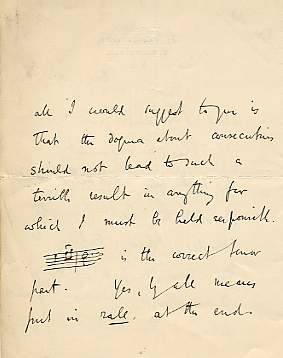 all I would suggest to you is
that the dogma about consecutives
should not lead to such a
terrible result in anything for
which I must be held responsible.
is the correct tenor
part. Yes, by all means
put in rall. at the end.